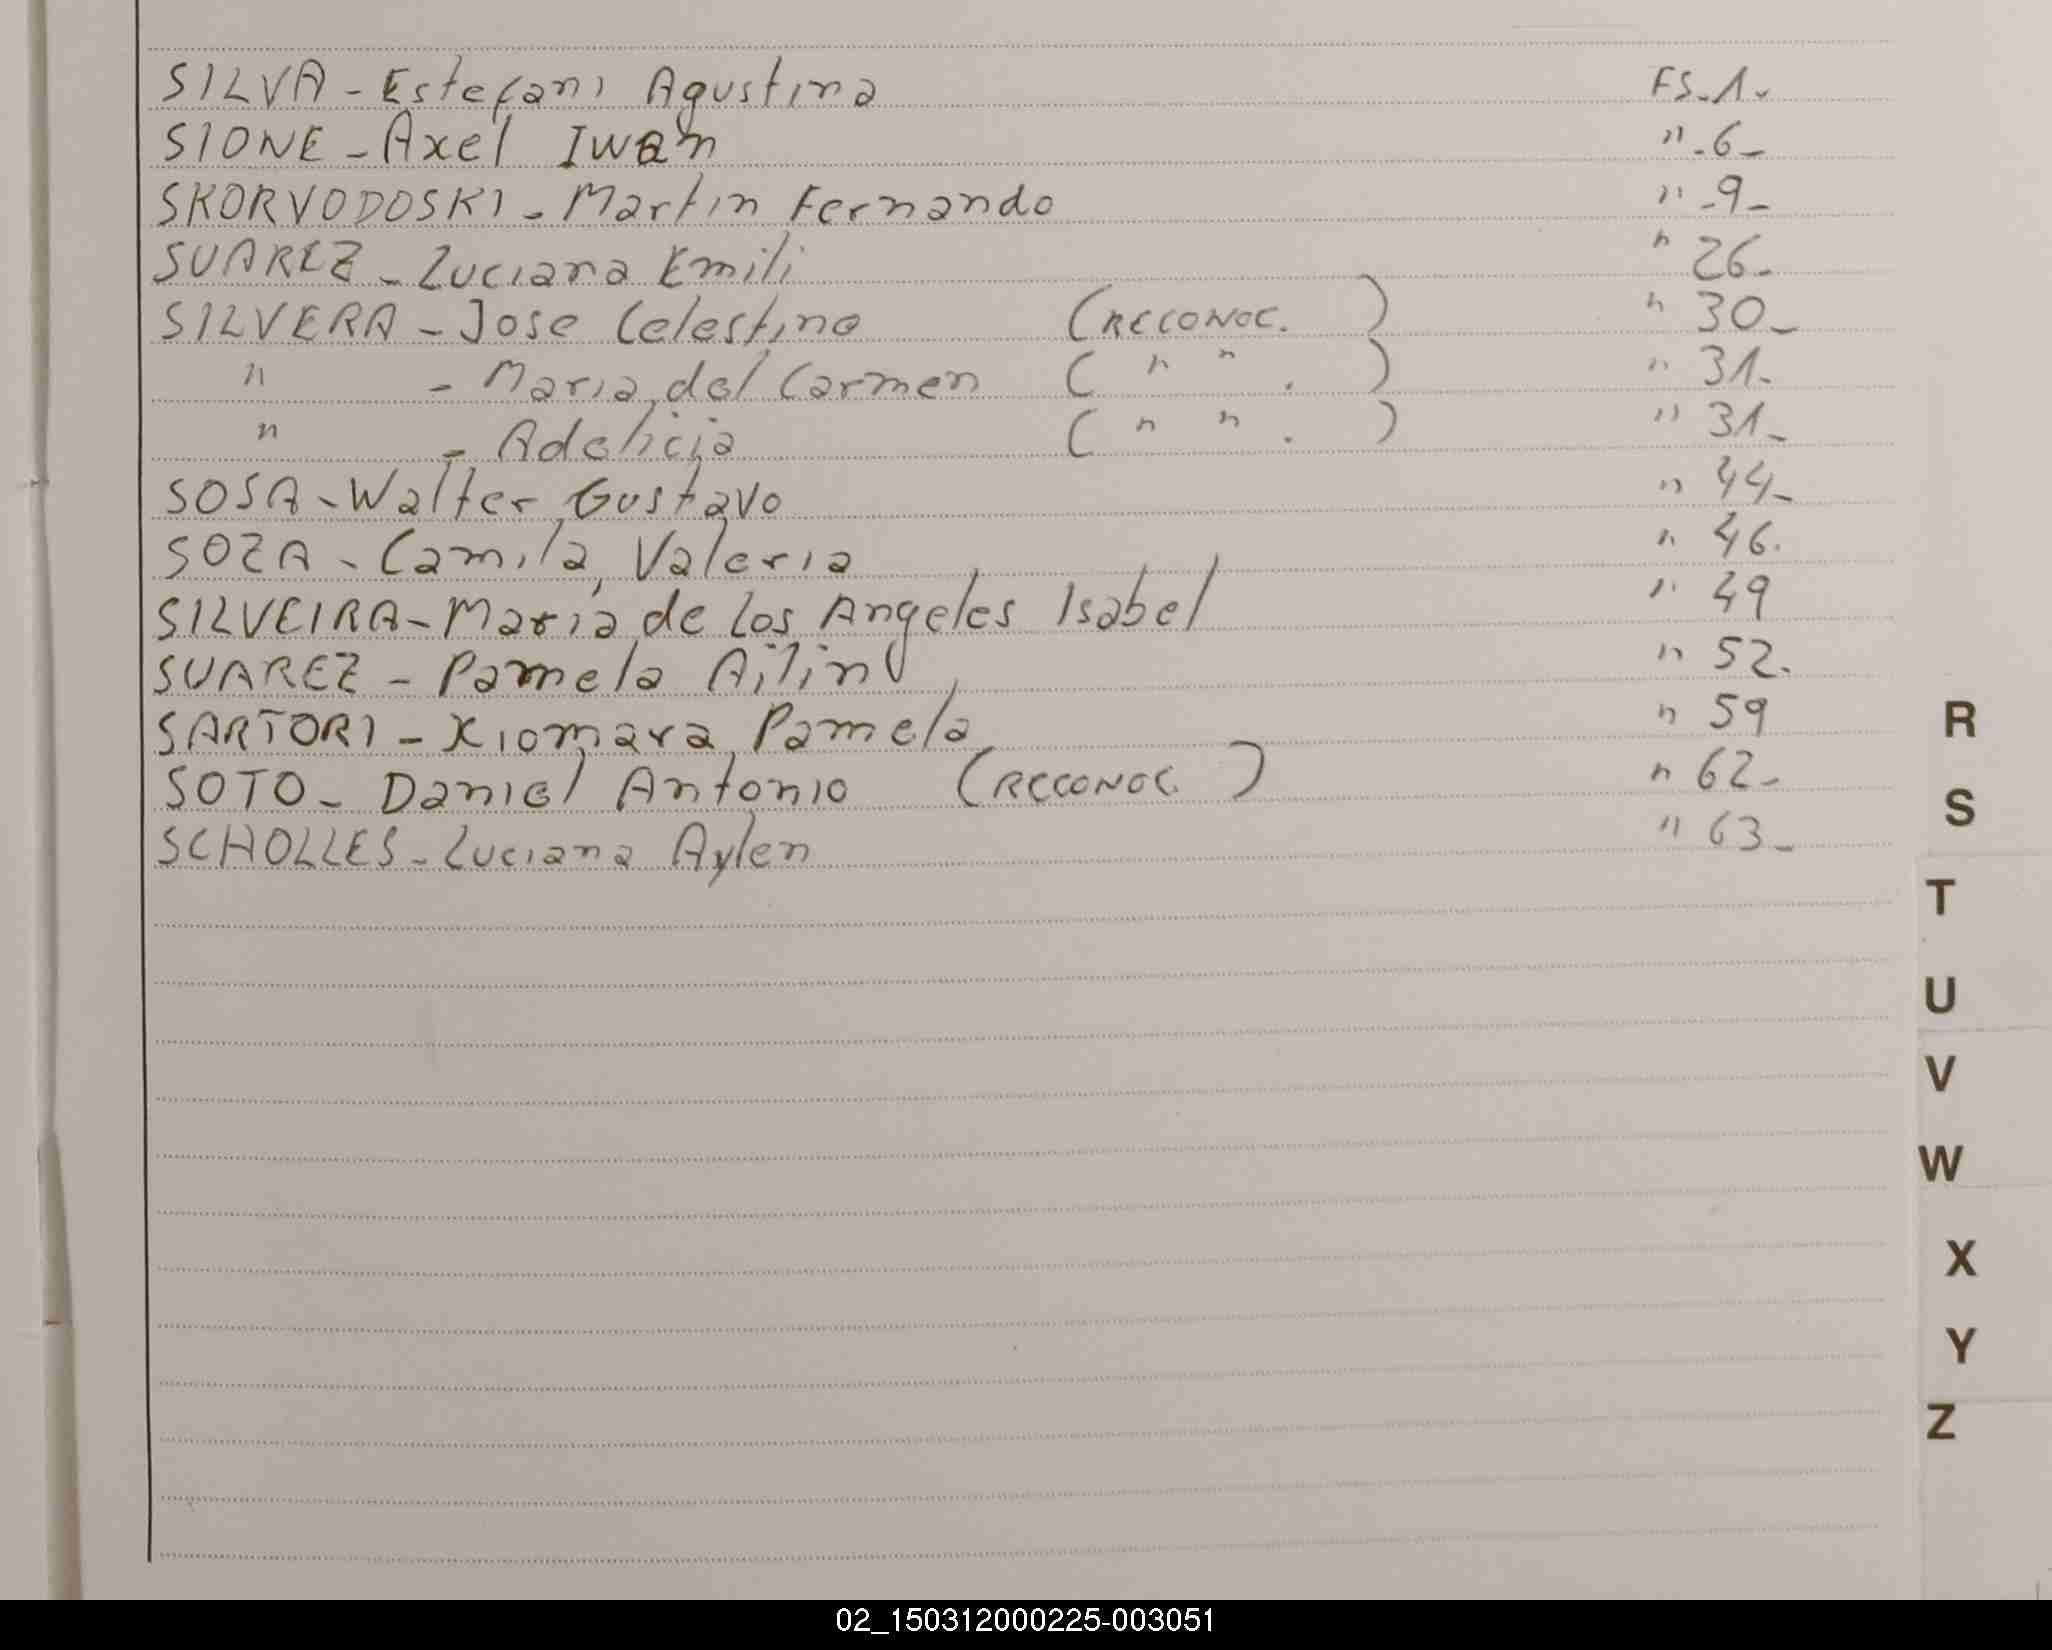 SILVA - Estefani Agustina FS. 1.
SIONE - Axel Iwan " - 6 -
SKORVODOSKI - Martin Fernando " - 9 -
SUAREZ - Luciana Emili " 26 -
SILVERA - Jose Celestino (RECONOC. ) " 30 -
" - Maria del Carmen ( " " . ) " 31 -
" - Adelicia ( " " . ) " 31 -
SOSA - Walter Gustavo " 44 -
SOZA - Camila Valeria " 46.
SILVEIRA - Maria de los Angeles Isabel " 49
SUAREZ - Pamela Ailin " 52.
SARTORI - Xiomara Pamela " 59
SOTO - Daniel Antonio (RECONOC. ) " 62 -
SCHOLLES - Luciana Aylen " 63 -
R
S
T
U
V
W
X
Y
Z
02_150312000225-003051